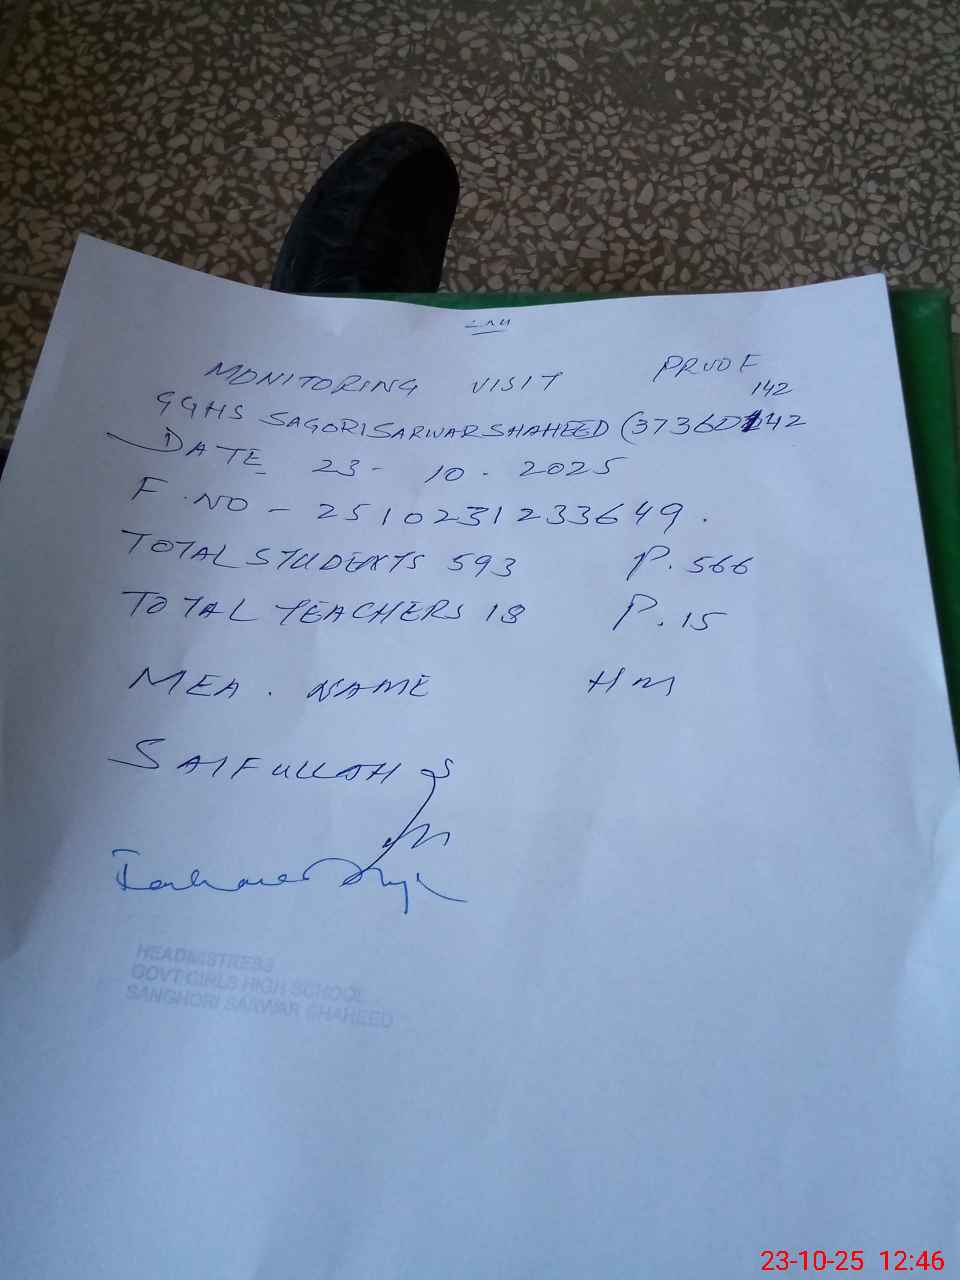 MONITORING VISIT PROOF
142
GGHS SAGORI SARWAR SHAHEED (37360142
DATE 23-10.2025
F.NO - 2510231233649.
TOTAL STUDENTS 593 P. 566
TOTAL TEACHERS 18 P. 15
MEA. NAME HM
SAIFULLAH
HEADMISTRESS
GOVT GIRLS HIGH SCHOOL
SANGHORI SARWAR SHAHEED
23-10-25 12:46